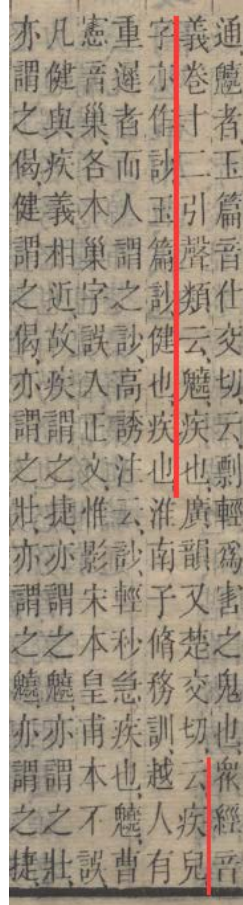 通䰫者玉篇音仕交切云剽輕爲害之鬼也衆經音
義卷十二引聲類云䰫疾也廣韻又楚交切云疾皃
字亦作訬玉篇訬健也疾也淮南子脩務訓越人有
重遲者而人謂之訬高誘注云訬輕秒急疾也䰫曹
憲音巢各本巢字誤入正文惟影宋本皇甫本不誤
凡健與疾義相近故疾謂之捷亦謂之䰫亦謂之壯
亦謂之偈健謂之偈亦謂之壯亦謂之䰫亦謂之捷